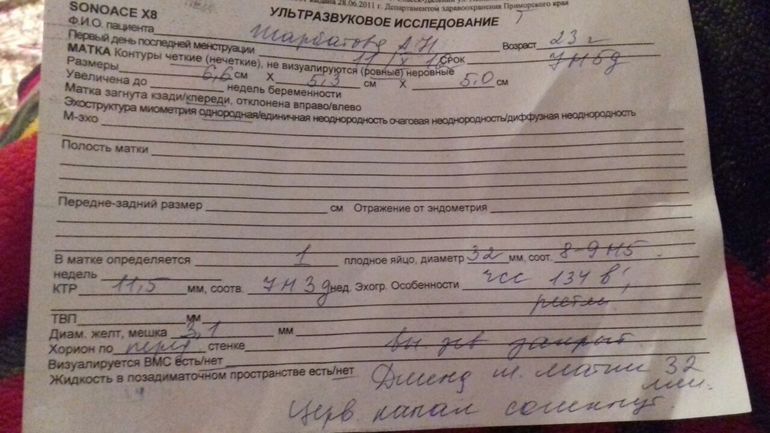 28.06.2011 г. Департаментом здравоохранения Приморского края
SONOACE X8
УЛЬТРАЗВУКОВОЕ ИССЛЕДОВАНИЕ
Ф.И.О. пациента Возраст 23 г
Первый день последней менструации 11 IX 16 Срок 7н5д
МАТКА Контуры четкие (нечеткие), не визуализируются (ровные) неровные
Размеры 6,6 см X 5,3 см X 5,0 см
Увеличена до недель беременности
Матка загнута кзади/кпереди, отклонена вправо/влево
Эхоструктура миометрия однородная/единичная неоднородность очаговая неоднородность/диффузная неоднородность
М-эхо
Полость матки
Передне-задний размер см Отражение от эндометрия
В матке определяется 1 плодное яйцо, диаметр 32 мм, соот. 8-9 н5
недель
КТР 11,5 мм, соотв. 7н3д нед. Эхогр. Особенности ЧСС 134 в'
ТВП мм
Диам. желт, мешка 3,1 мм
Хорион по перед стенке
Визуализируется ВМС есть/нет
Жидкость в позадиматочном пространстве есть/нет
Длина ш. матки 32 мм.
Церв. канал сомкнут